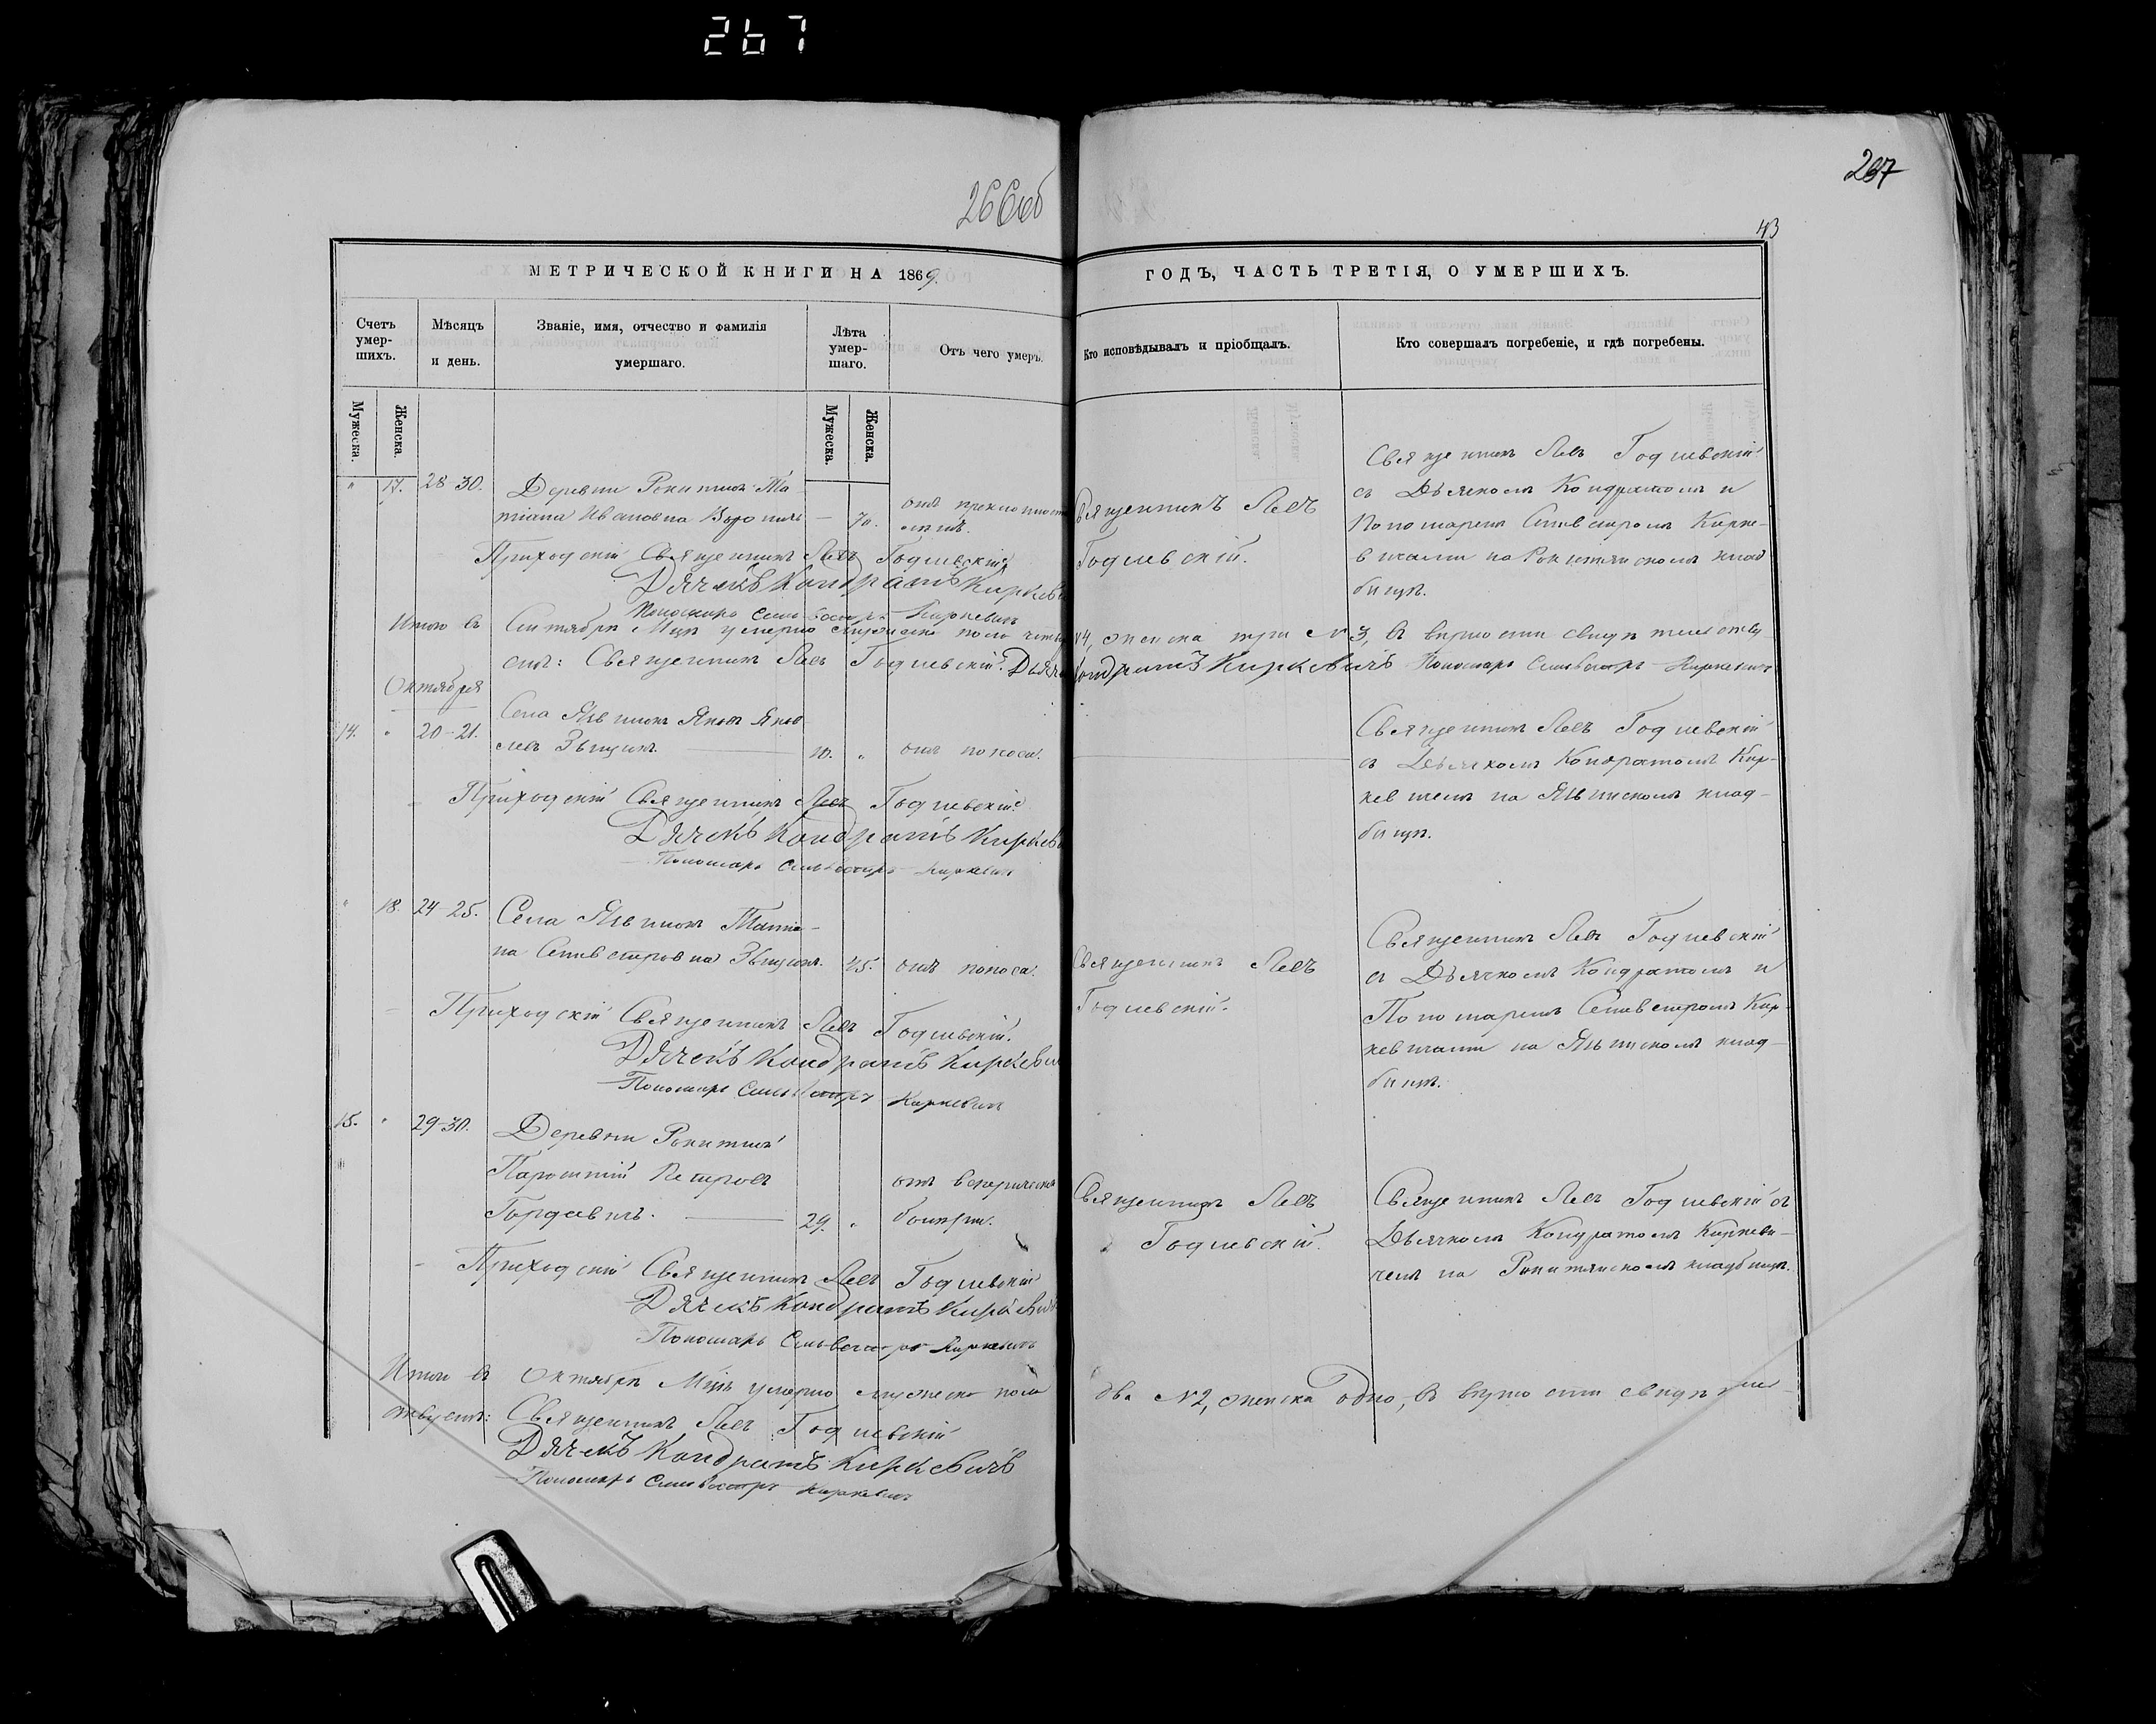 267
267
266об
43
МЕТРИЧЕСКОЙ КНИГИ НА 1869.
ГОДЪ, ЧАСТЬ ТРЕТІЯ, О УМЕРШИХЪ.
Счетъ умер-шихъ.
Мѣсяцъ и день.
Званіе, имя, отчество и фамилія умершаго.
Лѣта умер-шаго.
Отъ чего умеръ.
Кто исповѣдывалъ и пріобщалъ.
Кто совершалъ погребеніе, и гдѣ погребены.
Мужеска.
Женска.
Мужеска.
Женска.
" 17. 28-30.
Деревни Рокитна Та-
тіана Ивановна
— 70.
отъ преклонности
лѣтъ.
Священникъ Левъ
Годлевскій.
Священникъ Левъ Годлевскій
съ Дьячкомъ Кондратомъ и
Пономаремъ Сильвестромъ Кирке-
вичами на Рокитянскомъ клад
бищѣ.
Приходскій Священникъ Левъ Годлевскій
Дячекъ Кондратъ Киркеви
Пономарь Сильвестръ Киркевичъ
Итого въ Сентябрѣ М-цѣ умерло мужеска пола четыре
№ 4, женска три № 3, въ вѣрности свидѣтельству
емъ: Священникъ Левъ Годлевскій. Дьячекъ
Кондратъ Киркевичъ Пономарь Сильвестръ Киркевичъ
Октября
14. " 20-21.
Села Яковъ Яков
левъ
10. "
отъ поноса.
Священникъ Левъ Годлевскій
съ Дьячкомъ Кондратомъ Кир-
кевичемъ на клад-
бищѣ.
Приходскій Священникъ Левъ Годлевскій
Дячекъ Кондратъ Киркеви
Пономарь Сильвестръ Киркевичъ
" 18. 24-25.
Села Татіа-
на Сильвестровна
45.
отъ поноса.
Священникъ Левъ
Годлевскій.
Священникъ Левъ Годлевскій
съ Дьячкомъ Кондратомъ и
Пономаремъ Сильвестромъ Кир-
кевичами на клад-
бищѣ.
Приходскій Священникъ Левъ Годлевскій.
Дячекъ Кондратъ Киркеви
Пономарь Сильвестръ Киркевичъ
15. " 29-30.
Деревни Рокитна
Петровъ
29. "
отъ венерической
болѣзни.
Священникъ Левъ
Годлевскій.
Священникъ Левъ Годлевскій съ
Дьячкомъ Кондратомъ Киркеви-
чемъ на Рокитянскомъ кладбищѣ.
Приходскій Священникъ Левъ Годлевскій
Дячекъ Кондратъ Киркевичъ
Пономарь Сильвестръ Киркевичъ
Итого въ Октябрѣ М-цѣ умерло мужеска пола
два № 2, женска одно, въ вѣрности свидѣтель-
ствуемъ: Священникъ Левъ Годлевскій
Дячекъ Кондратъ Киркевичъ
Пономарь Сильвестръ Киркевичъ